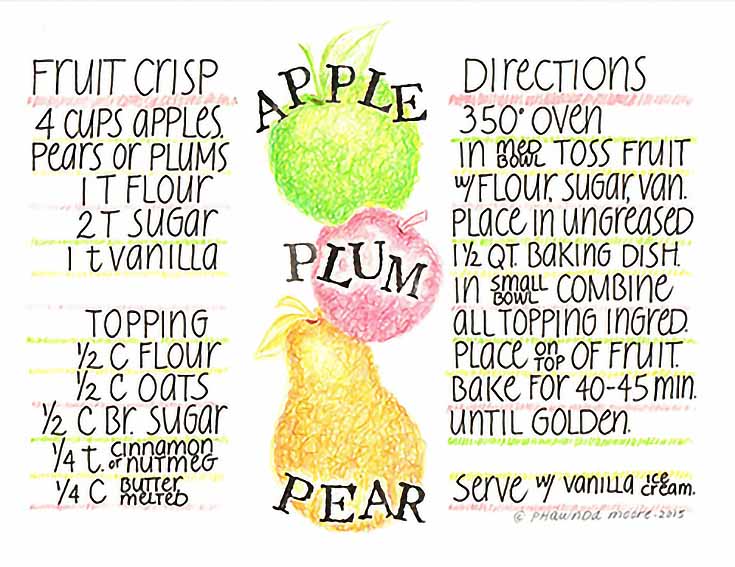 Fruit Crisp
4 cups apples,
pears or plums
1 T flour
2 T sugar
1 t vanilla
Topping
1/2 c flour
1/2 c oats
1/2 c br. sugar
1/4 t. cinnamon or nutmeg
1/4 c butter melted
APPLE
PLUM
PEAR
Directions
350° oven
in med bowl toss fruit
w/flour, sugar, van.
place in ungreased
1 1/2 qt. baking dish.
in small bowl combine
all topping ingred.
place on top of fruit.
Bake for 40-45 min.
until golden.
Serve w/ vanilla ice cream.
© Phawnda Moore · 2015